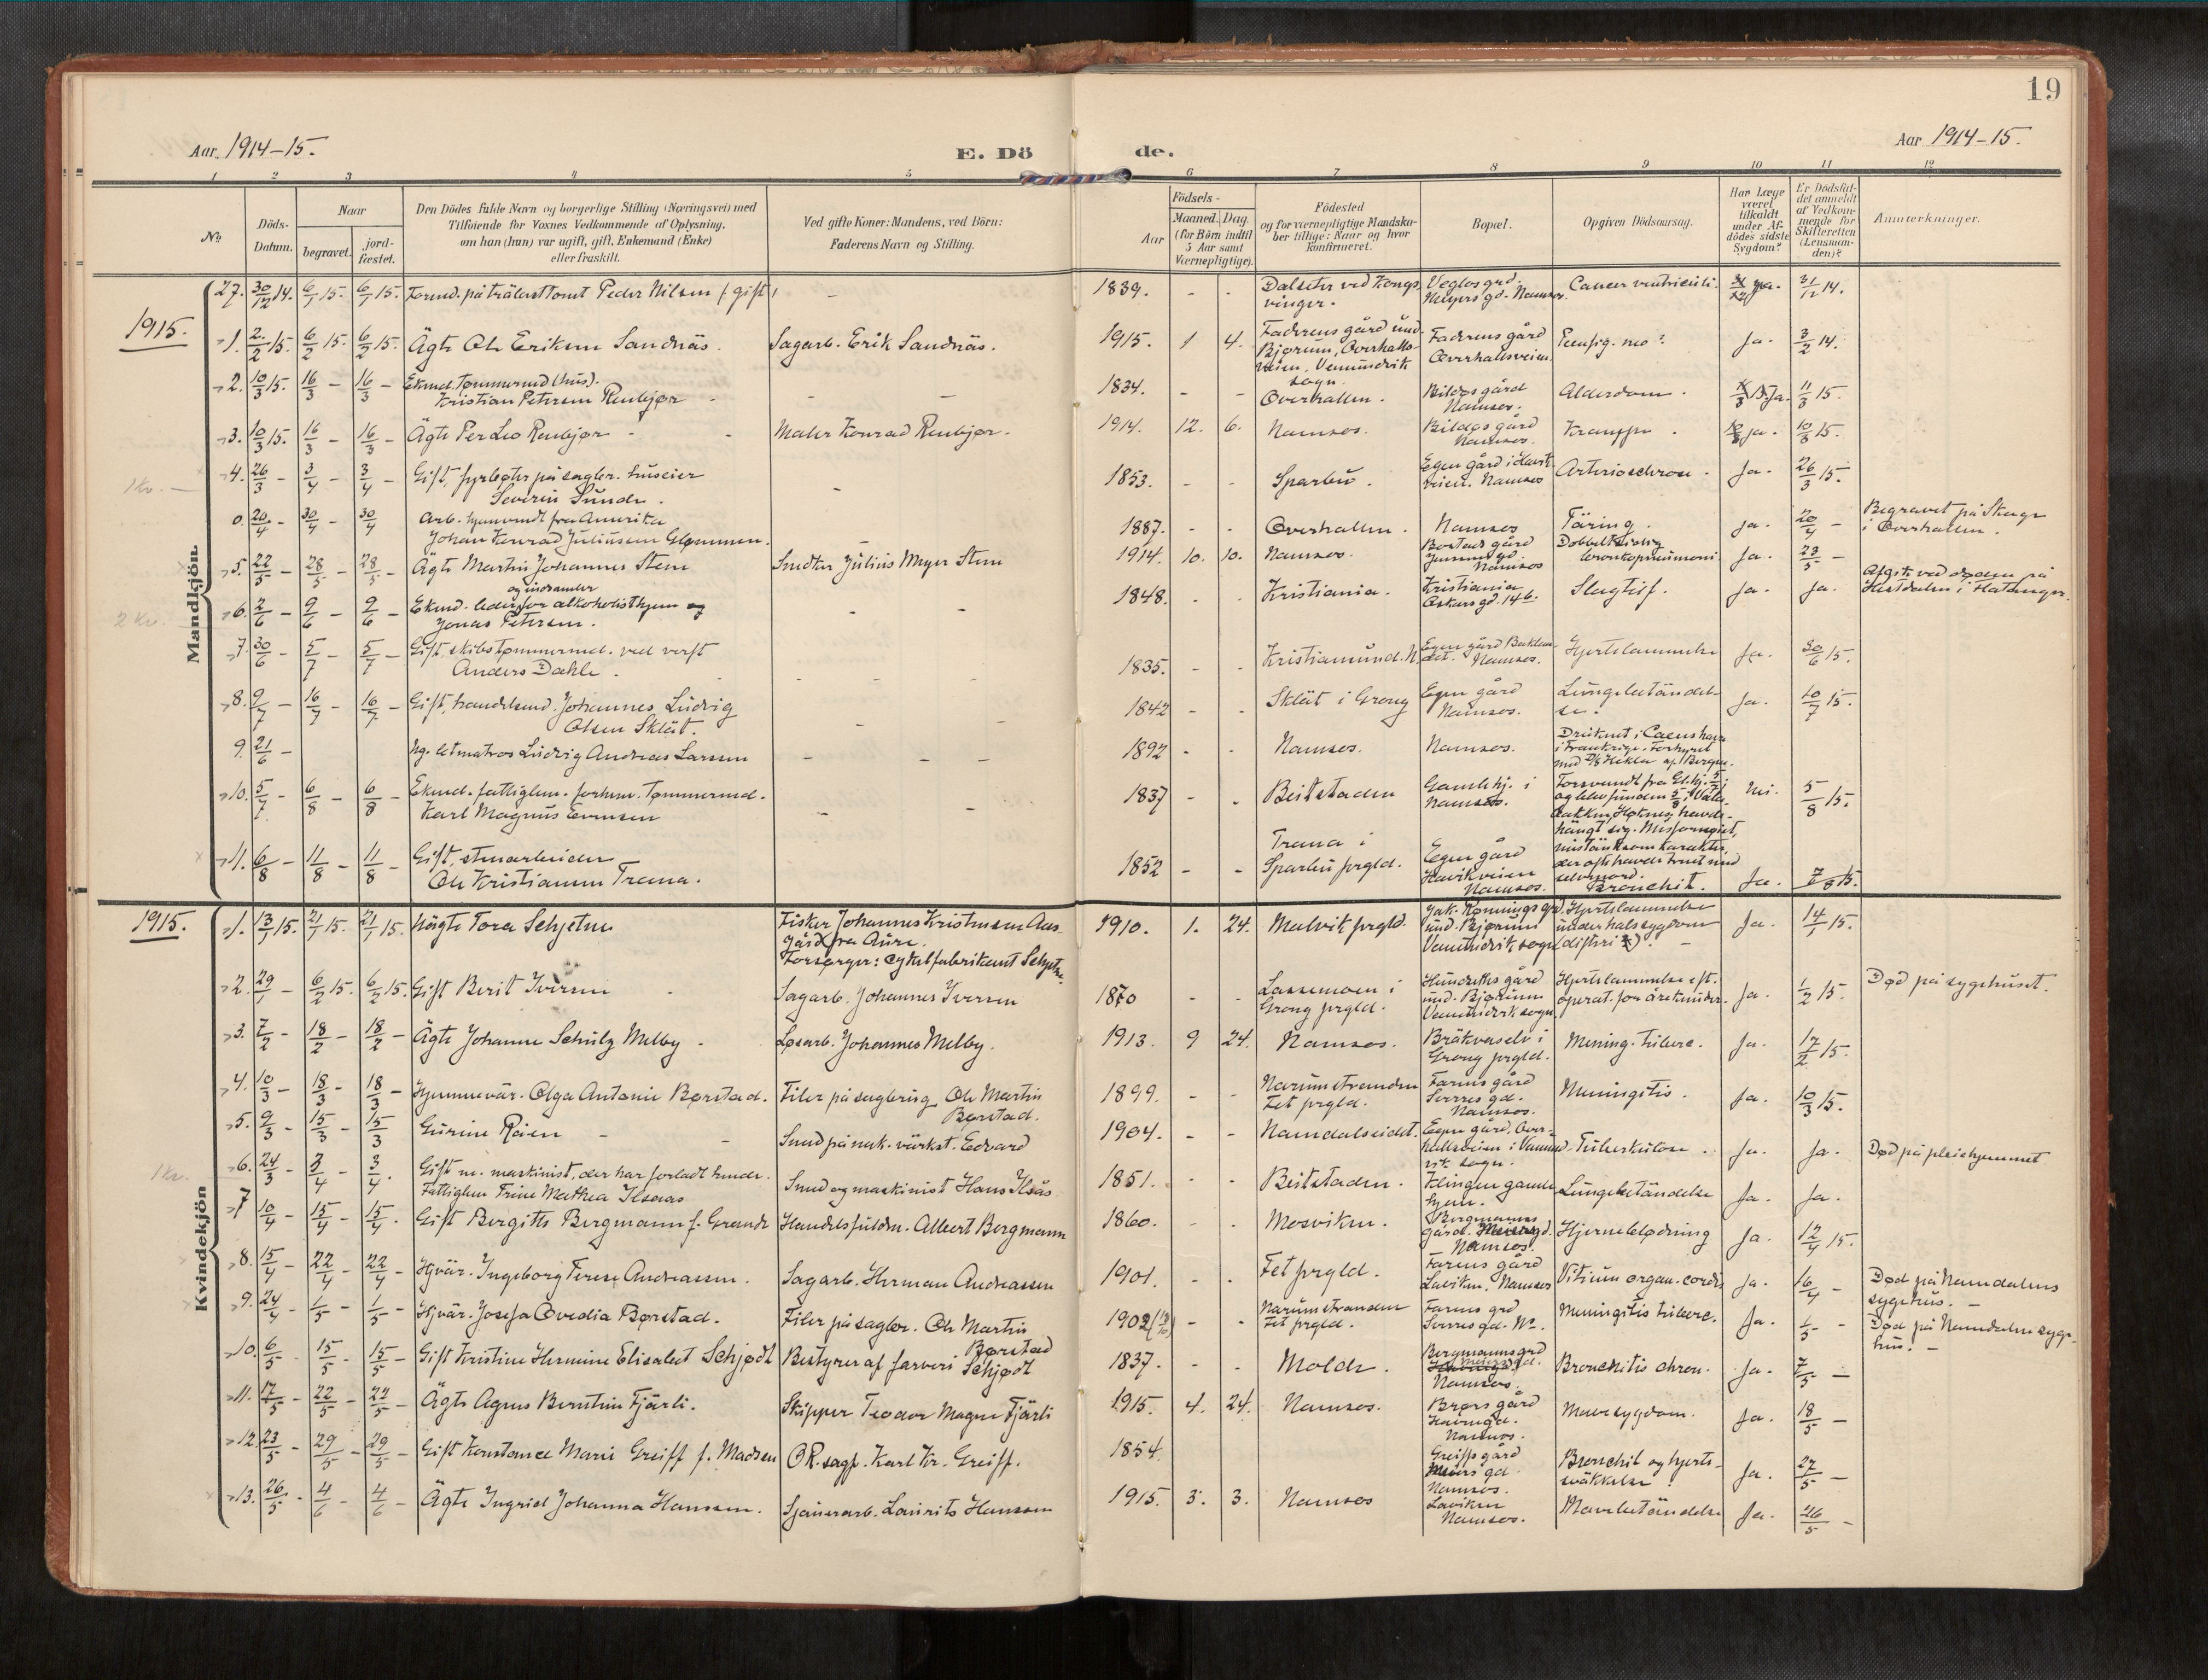 19
Aar 1914-15.
E. Dö de.
Aar 1914-15.
1 2 3 4 5 6 7 8 9 10 11 12
No
Döds-Datum.
Naar
begravet.
jord-fæstet.
Den Dödes fulde Navn og borgerlige Stilling (Næringsvei) med
Tilföiende for Voxnes Vedkommende af Oplysning,
om han (hun) var ugift, gift, Enkemand (Enke)
eller fraskilt.
Ved gifte Koner: Mandens, ved Börn:
Faderens Navn og Stilling.
Födsels-
Aar
Maaned. Dag.
(for Börn indtil
5 Aar samt
Værnepligtige).
Födested
og for værnepligtige Mandska-
ber tillige: Naar og hvor
konfirmeret.
Bopæl.
Opgiven Dödsaarsag.
Har Læge
været
tilkaldt
under Af-
dödes sidste
Sygdom?
Er Dödsfal-
det anmeldt
af Vedkom-
mende for
Skifteretten
(Lensman-
den)?
Anmærkninger.
Mandkjön
27. 30/12 14. 6/1 15. 6/1 15. Peder Nilsen (gift) - 1839. - - Dalseter ved Kongsvinger. Namsos. Cancer ventriculi. ja. 31/12 14.
1915.
1. 2/2 15. 6/2 15. 6/2 15. Ägte Ole Eriksen Sandnäs. Sagarb. Erik Sandnäs. 1915. 1 4. Faderens gård und. Bjørum, Overhallsveien, Vemundvik sogn. Faderens gård Overhallsveien Ja. 3/2 14.
2. 10/3 15. 16/3 - 16/3 - Ekmd. Tømmermd (hus). Kristian Petersen Renbjør - - 1834. - - Overhallen. Bildøs gård Namsos. Alderdom. Ja. 11/3 15.
3. 10/3 15. 16/3 - 16/3 - Ägte Per Leo Renbjør - Maler Konrad Renbjør. 1914. 12. 6. Namsos. Bildøs gård Namsos. Krampe. ja. 10/3 15.
1 Kr. -
4. 26/3 - 3/4 - 3/4 - Gift, fyrbøter på sagbr. huseier Severin Sunde. - 1853. - - Sparbu. Egen gård i Havikveien. Namsos Arteriosclerose. Ja. 26/3 15.
0. 20/4 - 30/4 - 30/4 Arb. hjemvendt fra Amerika Johan Konrad Juliussen Glømmen. - 1887. - - Overhallen. Namsos Täring. Ja. 20/4 - Begravet på Skage i Overhallen.
5. 22/5 - 28/5 - 28/5 - Ägte Martin Johannes Stene Smelter Julius Meyer Stene 1914. 10. 10. Namsos. Namsos Dobbeltsidig bronkopneumoni Ja. 23/5 -
2 Kr.
6. 2/6 - 9/6 - 9/6 - Ekmd. leder for alkoholisthjem og og indsamler Jonas Petersen. - - 1848. - - Kristiania. Kristiania Oskars gd. 14b. Slagtilf. Ja. Ja. Afgik ved døden på i Flatanger.
7. 30/6 - 5/7 - 5/7 - Gift, skibstømmermd. ved verft Anders Dahle. - - - 1835. - - Kristiansund. N. Egen gård Namsos. Hjertelammelse Ja. 30/6 15.
8. 9/7 - 16/7 - 16/7 - Gift, handelsmd. Johannes Ludvig Olsen Sklät. - - 1842 - - Sklät i Grong Egen gård Namsos. Lungebetändelse. Ja. 10/7 15.
9. 21/6 - Ug. letmatros Ludvig Andreas Larsen - - - 1892 - - Namsos. Namsos. Druknet i Caens havn i Frankrige. Forhyret med D/S Hekla af Bergen.
10. 5/7 - 6/8 - 6/8 - Ekmd. fattiglem. forhen. tømmermd. Karl Magnus Evensen - - 1837 - - Beitstaden Gamlehj. i Namsos. Forsvundt fra Gl.hj. 5/7 og blev funden 5/8 i havde hängt sig. Nei. 5/8 15.
11. 6/8 - 11/8 - 11/8 - Gift, stenarbeider Ole Kristiansen Trana. 1852 - - Trana i Sparbu prgld. Egen gård Havikveien Namsos. Bronchit. Ja. 7/8 15.
Kvindekjön
1915.
1. 13/1 15. 21/1 15. 21/1 15. Uägte Tora Schjetne Fisker Johannes Kristensen Aasgård fra Aure. Forsørger: Cykelfabrikant Schjetne 1910. 1. 24. Malvik prgld. Jak. Rønnings grd. und. Bjørum Vemundvik sogn Hjertelammelse under halssygdom (difteri?). Ja. 14/1 15.
2. 29/1 - 6/2 15. 6/2 15. Gift Berit Iversen - Sagarb. Johannes Iversen 1870 - - Lassemoen i Grong prgld. gård und. Bjørum Vemundvik sogn. Hjertelammelse eft. operat. for åreknuder. Ja. 1/2 15. Død på sygehuset.
3. 7/2 - 18/2 - 18/2 - Ägte Johanne Schulz Melby - Løsarb. Johannes Melby. 1913. 9 24. Namsos. i Grong prgld. Mening. tuberc. Ja. 17/2 15.
4. 10/3 - 18/3 - 18/3 - Hjemmevär. Olga Antonie Børstad. Filer på sagbrug Ole Martin Børstad. 1899. - - Narumstranden Fet prgld. Farens gård Namsos. Meningitis. Ja. 10/3 15.
5. 9/3 - 15/3 - 15/3 Gurine Røien - - Smed på mek. värkst. Edvard 1904. - - Namdalseidet. Egen gård, Overhallsveien i Vemundvik sogn. Tuberkulose. Ja. Ja. Død på pleiehjemmet
1 Kr.
6. 24/3 - 3/4 - 3/4. Gift m. maskinist, der har forladt hende. Fattiglem Trine Mathea Ilsaas Smed og maskinist Hans Ilsås 1851. - - Beitstaden. Klingen gamlehjem. Lungebetändelse Ja. Ja.
7 10/4 - 15/4 - 15/4. Gift Bergitte Bergmann f. Grande Handelsfuldm. Albert Bergmann 1860. - - Mosviken. Bergmanns gård. Namsos. Hjerneblødning Ja. 12/4 15.
8. 15/4 - 22/4 - 22/4 - Hjvär. Ingeborg Terese Andreassen. Sagarb. Herman Andreassen 1901. - - Fet prgld. Farens gård Laviken. Namsos Vitium organ. cordis Ja. 16/4 - Død på Namdalens sygehus. -
9. 24/4 - 1/5 - 1/5 - Hjvär. Josefa Ovedia Børstad. Filer på sagbr. Ole Martin Børstad 1902 - - Narumstranden Fet prgld. Farens grd Meningitis tuberc. Ja. 1/5 - Død på Namdalens sygehus. -
10. 6/5 - 15/5 - 15/5 - Gift Kristine Hermine Elisabet Schjødt Bestyrer af farveri Schjødt 1837. - - Molde. Bergmanns grd Namsos. Bronchitis chron. Ja. 7/5 -
11. 17/5 - 22/5 - 22/5 - Ägte Agnes Berntine Fjärli. Skipper Teodor Magne Fjärli 1915. 4. 24. Namsos. Brørs gård Namsos. Mavesygdom. Ja. 18/5 -
12. 23/5 - 29/5 - 29/5 - Gift Konstance Marie Greiff f. Madsen O.R.sagf. Karl Kr. Greiff. 1854. Greiffs gård Namsos. Bronchit og hjertesväkkelse. Ja. 27/5 -
13. 26/5 - 4/6 - 4/6 - Ägte Ingrid Johanna Hanssen. Sjauerarb. Laurits Hanssen 1915. 3. 3. Namsos Laviken Namsos. Mavebetändelse Ja. 26/5 -